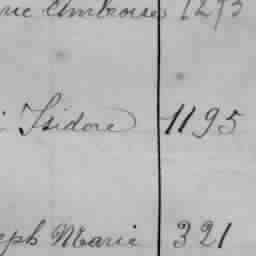 Ambroise 1293
Isidore 1195
eph Marie 321